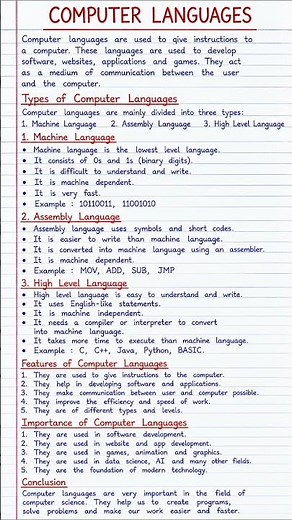 COMPUTER LANGUAGES
Computer languages are used to give instructions to
a computer. These languages are used to develop
software, websites, applications and games. They act
as a medium of communication between the user
and the computer.
Types of Computer Languages
Computer languages are mainly divided into three types:
1. Machine Language 2. Assembly Language 3. High Level Language
1. Machine Language
• Machine language is the lowest level language.
• It consists of 0s and 1s (binary digits).
• It is difficult to understand and write.
• It is machine dependent.
• It is very fast.
• Example : 10110011, 11001010
2. Assembly Language
• Assembly language uses symbols and short codes.
• It is easier to write than machine language.
• It is converted into machine language using an assembler.
• It is machine dependent.
• Example : MOV, ADD, SUB, JMP
3. High Level Language
• High level language is easy to understand and write.
• It uses English-like statements.
• It is machine independent.
• It needs a compiler or interpreter to convert
into machine language.
• It takes more time to execute than machine language.
• Example : C, C++, Java, Python, BASIC.
Features of Computer Languages
1. They are used to give instructions to the computer.
2. They help in developing software and applications.
3. They make communication between user and computer possible.
4. They improve the efficiency and speed of work.
5. They are of different types and levels.
Importance of Computer Languages
1. They are used in software development.
2. They are used in website and app development.
3. They are used in games, animation and graphics.
4. They are used in data science, AI and many other fields.
5. They are the foundation of modern technology.
Conclusion
Computer languages are very important in the field of
computer science. They help us to create programs,
solve problems and make our work easier and faster.